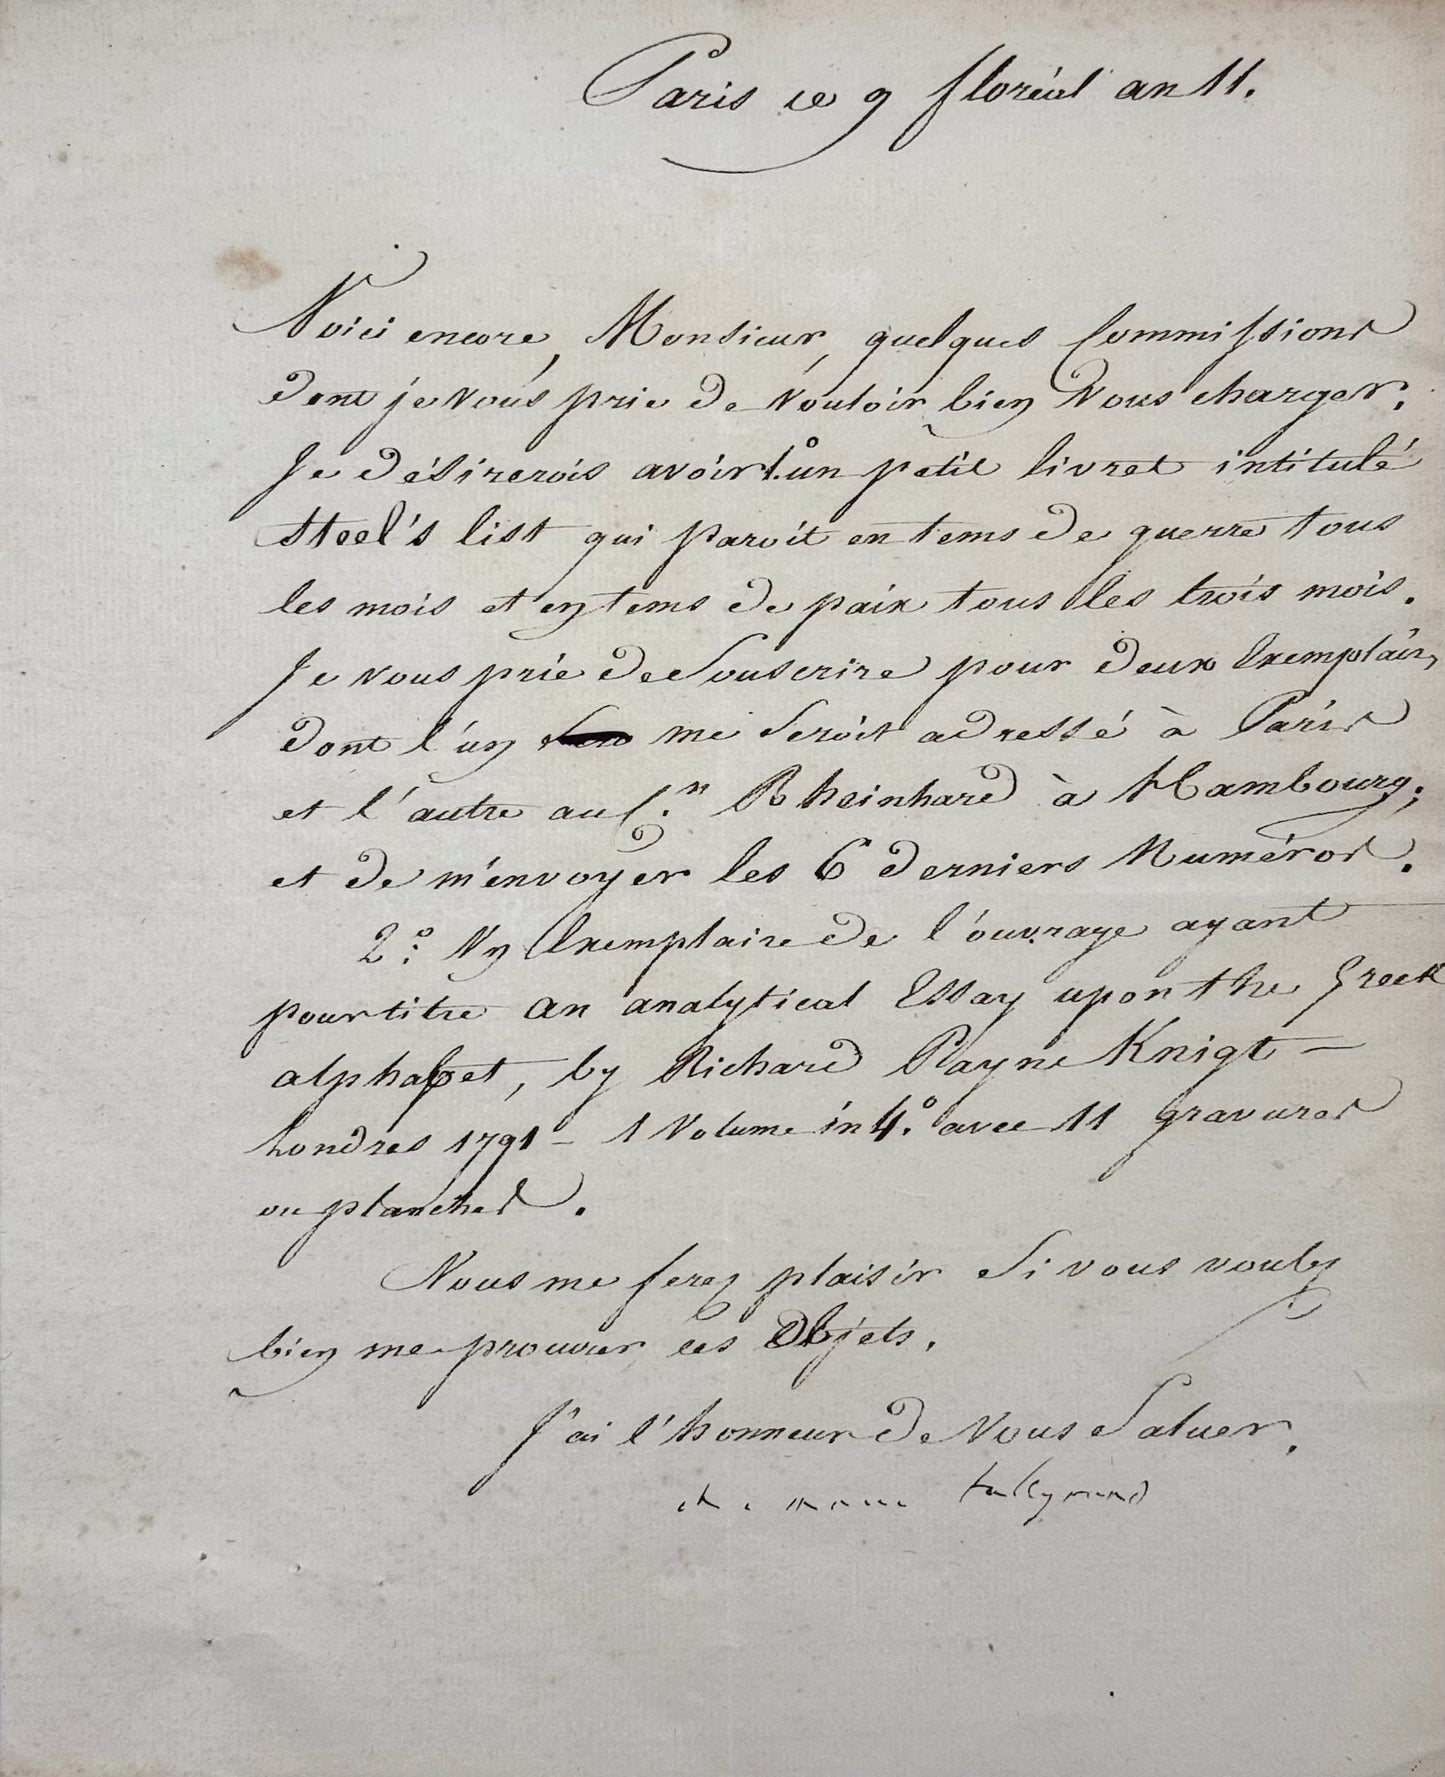 Paris ce 9 floréal an 11.
Voici encore, Monsieur, quelques Commissions
dont je vous prie de vouloir bien vous charger.
Je désirerois avoir 1.° un petit livret intitulé
Steel's list qui paroit en tems de guerre tous
les mois et en tems de paix tous les trois mois.
Je vous prie de Souscrire pour deux Exemplair,
dont l'un me Seroit adressé à Paris
et l'autre au C.en Rheinhard à Hambourg;
et de m'envoyer les 6 derniers Numéros.
2.° Un Exemplaire de l'ouvrage ayant
pour titre an analytical Essay upon the Greek
alphabet, by Richard Payne Knigt –
Londres 1791 – 1 Volume in 4.° avec 11 gravures
ou planches.
Vous me ferez plaisir Si vous voulez
bien me procurer ces Objets.
J'ai l'honneur de vous Saluer.
talleyrand